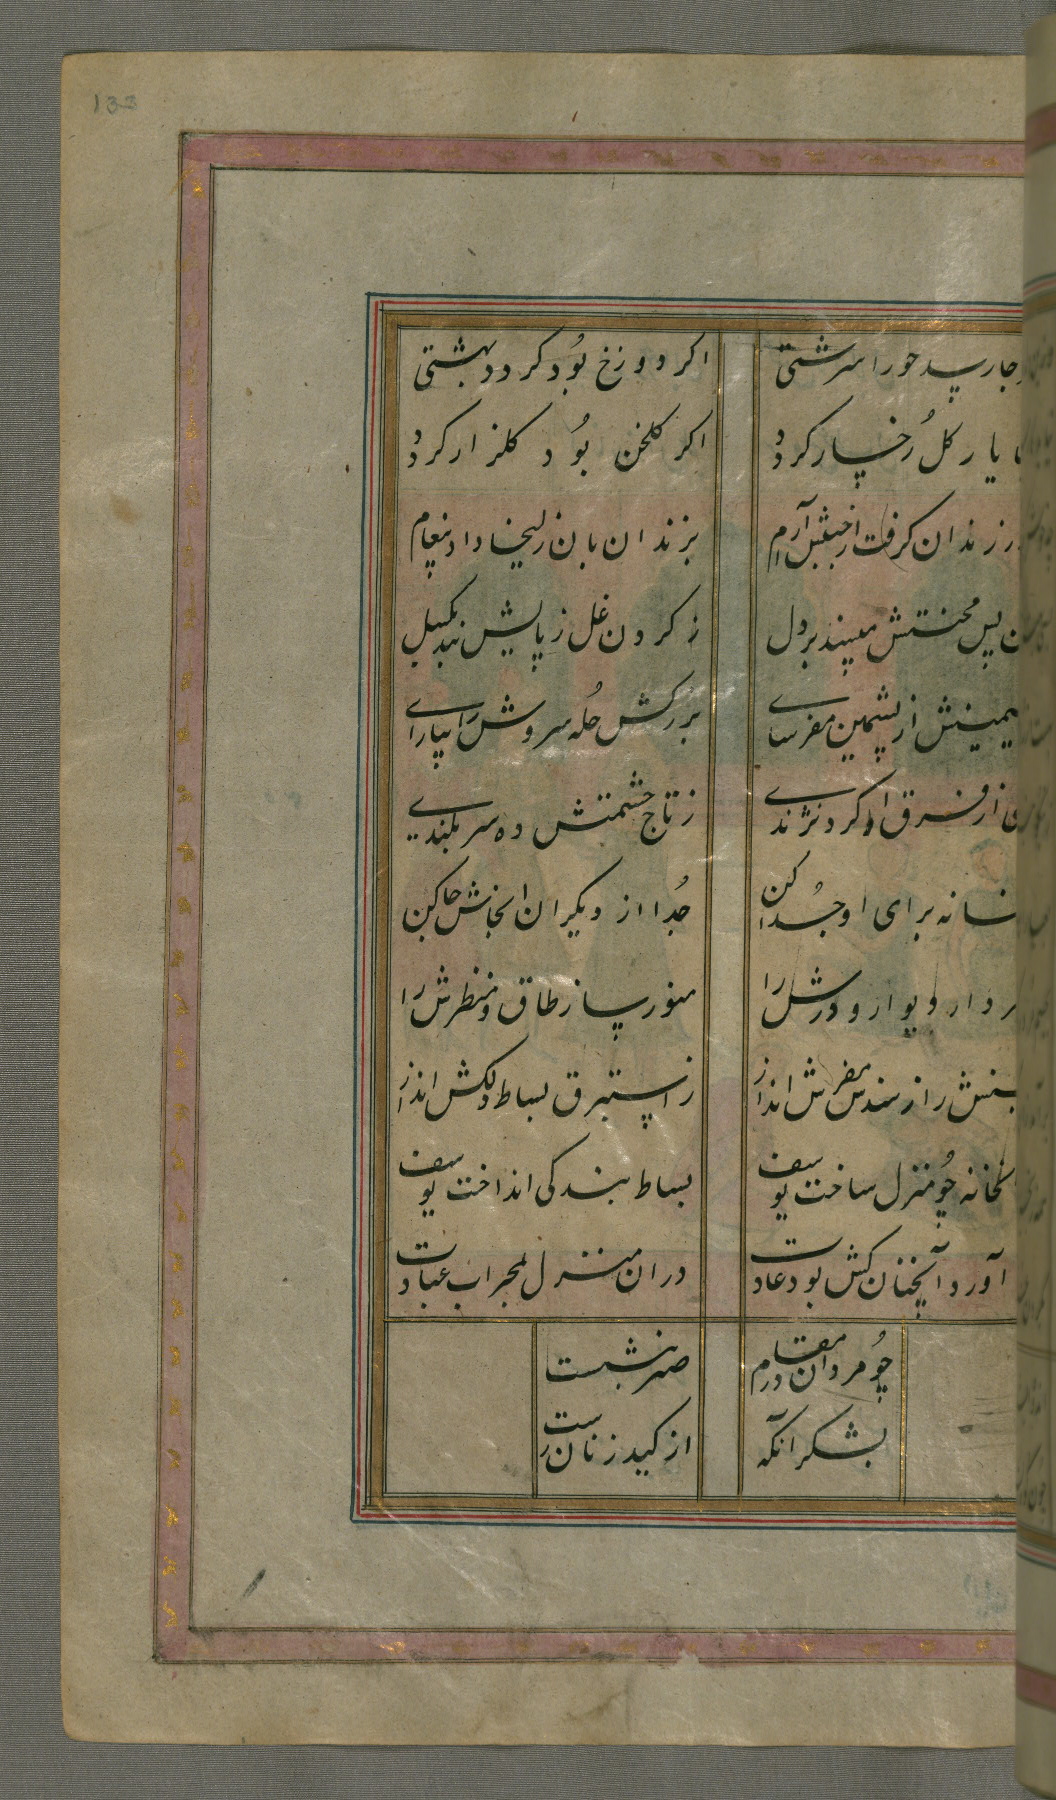 133
جا رسد حورا سرشتی اکر دوزخ بود کردد بهشتی
یار کل رخسار کردد اکر کلخن بود کلزار کردد
زندان کرفت از جنبش آرام بزندان بان زلیخا داد پیغام
پس محنتش مپسند بر دل ز کردن غل ز پایش بند بکسل
از پشمین مفرسای بزرکش حله سروش را بیارای
از فرق او کرد نژندی ز تاج حشمتش ده سربلندی
خانه برای او جدا کن جدا از دیکران انجاش جا کن
دار دیوار و درش را منور ساز طاق و منظرش را
را از سندس مفرش انداز ز استبرق بساط دلکش انداز
چو منزل ساخت یوسف بساط بندکی انداخت یوسف
آورد آنچنان کش بود عادت دران منزل بمحراب عبادت
چو مردان در مقام صبر بنشست
بشکر انکه از کید زنان رست